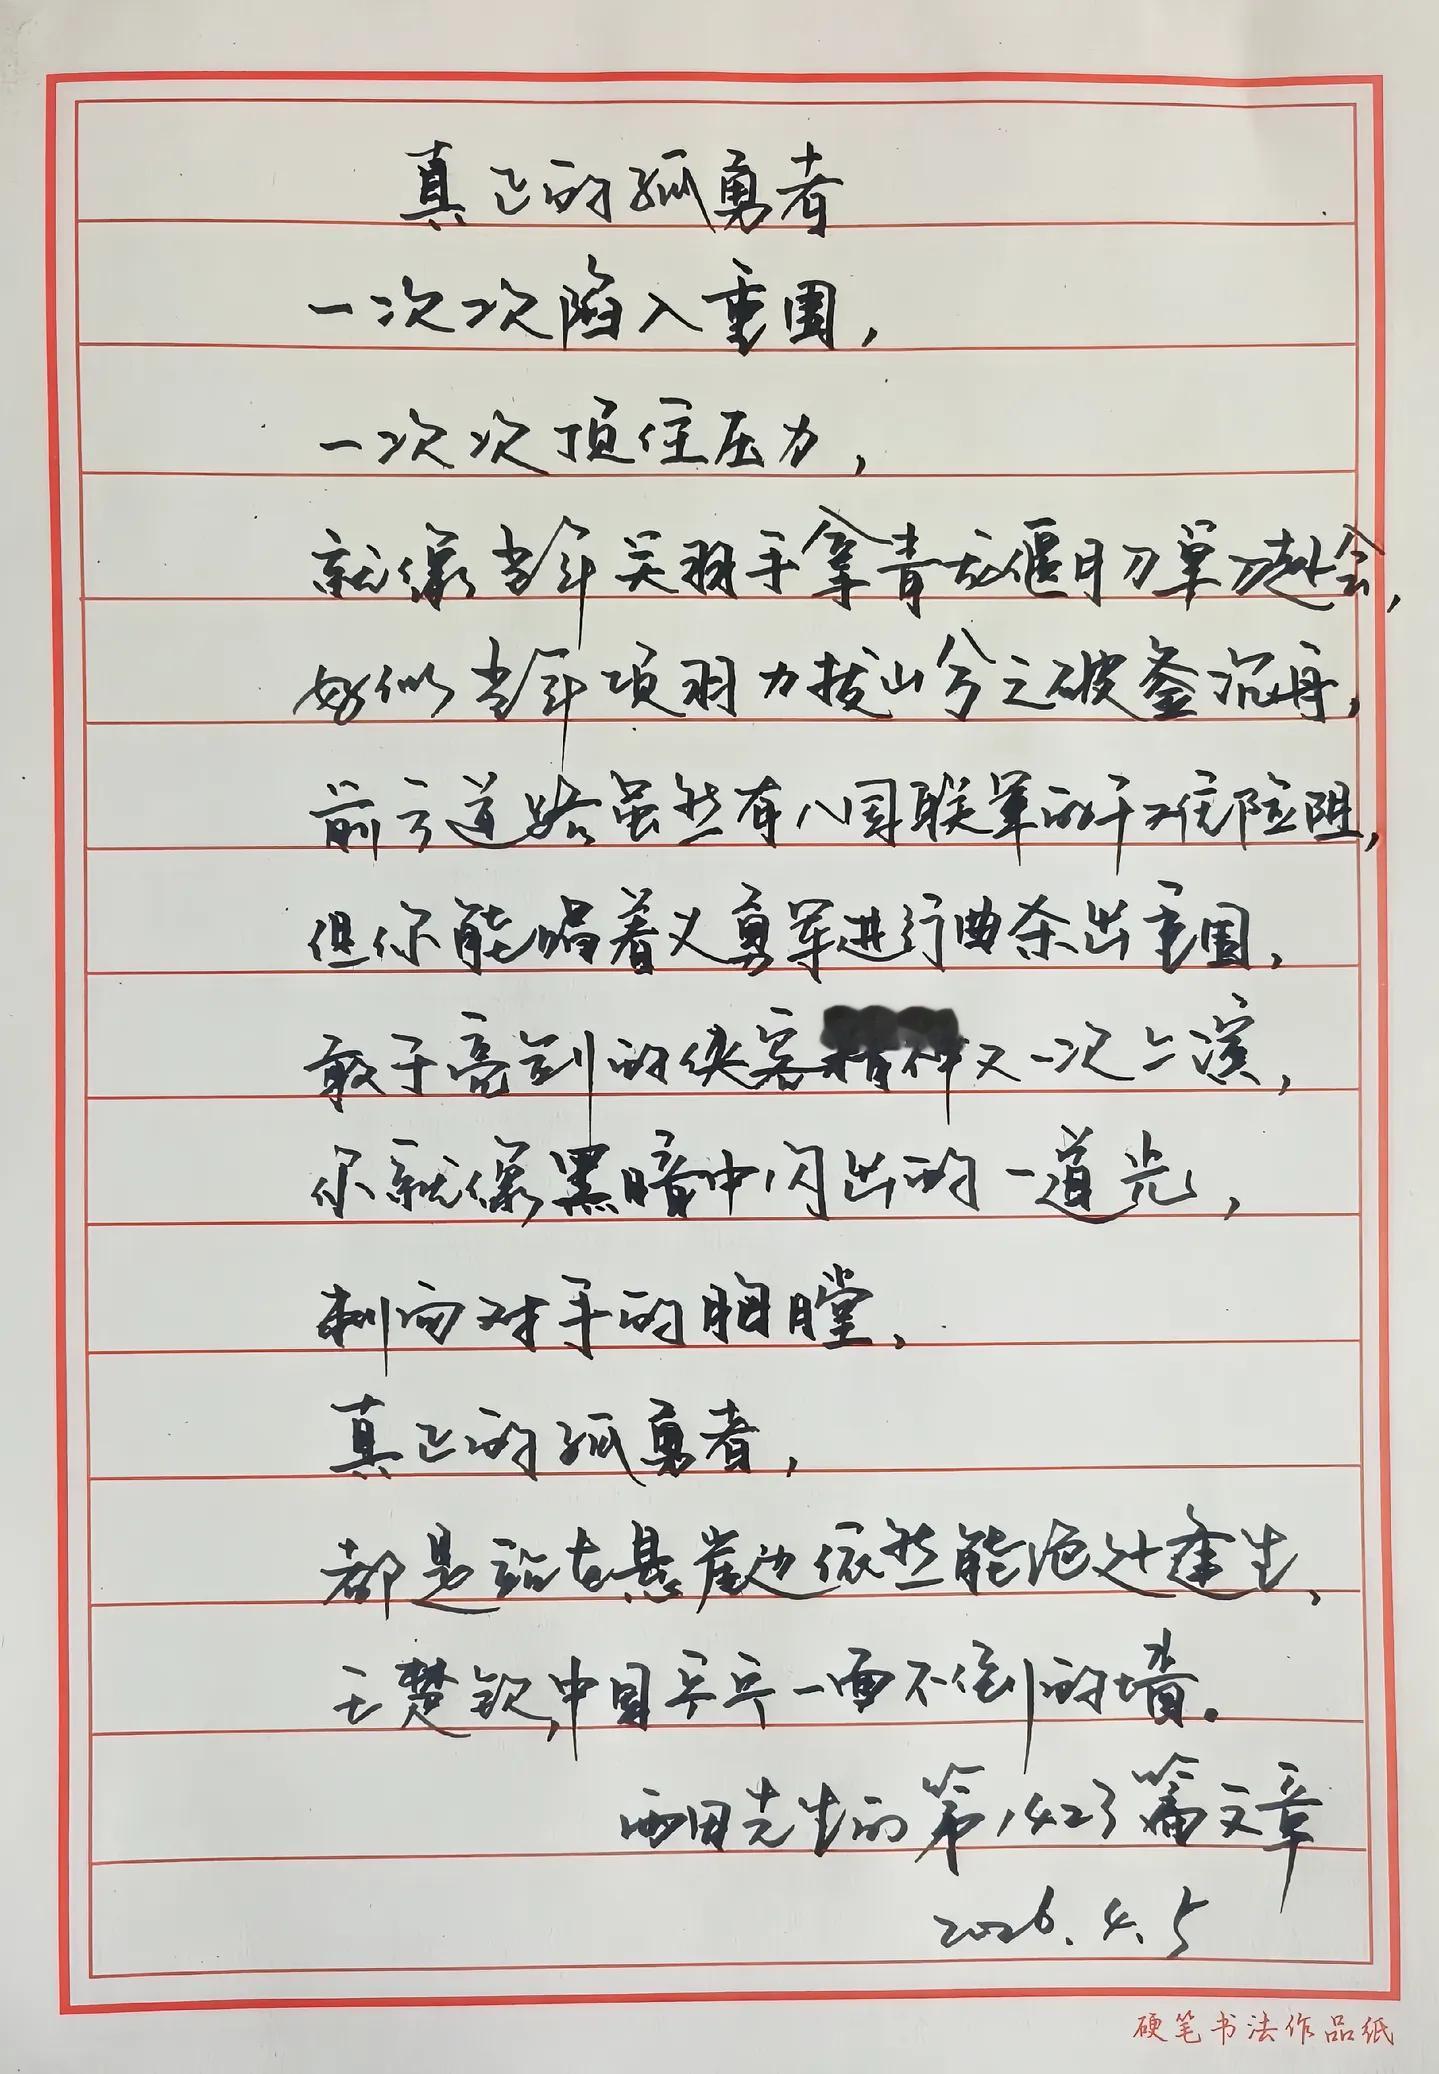 真正的孤勇者
一次次陷入重围，
一次次顶住压力，
就像当年关羽手拿青龙偃月刀单刀赴会，
好似当年项羽力拔山兮之破釜沉舟，
前方道路虽然有八国联军的千难险阻，
但你能唱着义勇军进行曲杀出重围，
敢于亮剑的侠客精神又一次上演，
你就像黑暗中闪出的一道光，
刺向对手的胸膛。
真正的孤勇者，
都是站在悬崖边依然能绝处逢生、
王楚钦，中国乒乓一面不倒的墙。
西田先生的第1423篇文章
2026.4.5
硬笔书法作品纸